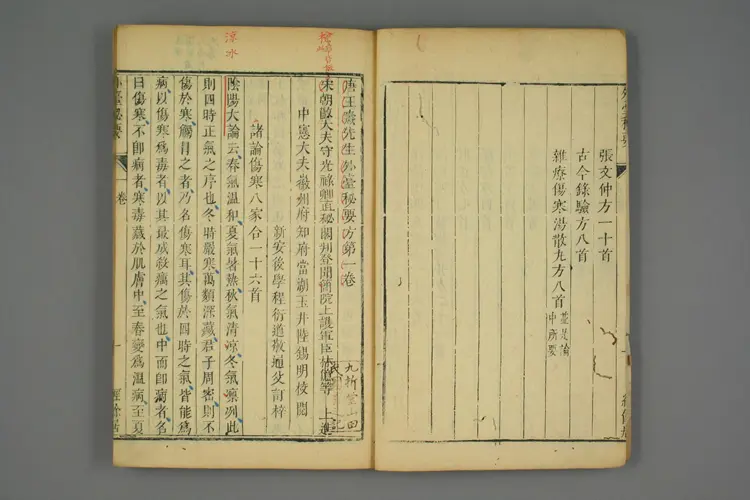 張文仲方一十首
古今錄驗方八首
雜療傷寒湯散丸方八首
唐王燾先生外臺秘要方第一卷
宋朝散大夫守光祿卿直秘閣判登聞簡院上護軍臣林億等 上進
中憲大夫徽州府知府當湖玉井陸錫明校閱
新安後學程衍道敬通父訂梓
諸論傷寒八家合一十六首
陰陽大論云春氣溫和夏氣暑熱秋氣清涼冬氣凛冽此
則四時正氣之序也冬時嚴寒萬類深藏君子周密則不
傷於寒觸冒之者乃名傷寒耳其傷於四時之氣皆能爲
病以傷寒爲毒者以其最成殺癘之氣也中而卽病者名
曰傷寒不卽病者寒毒藏於肌膚中至春變爲溫病至夏
涼水
九折堂山田
卷
一